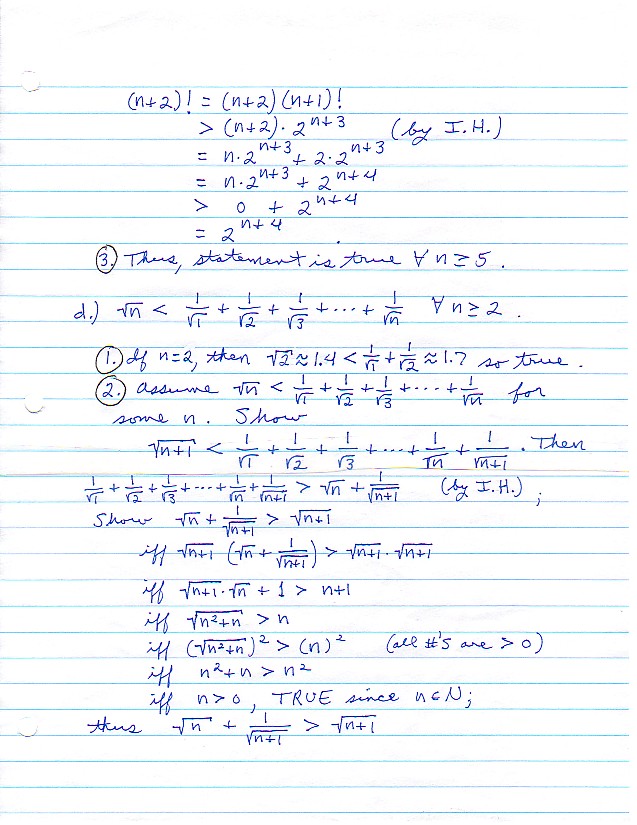 (n+2)! = (n+2)(n+1)!
> (n+2)·2^{n+3} (by I.H.)
= n·2^{n+3} + 2·2^{n+3}
= n·2^{n+3} + 2^{n+4}
> 0 + 2^{n+4}
= 2^{n+4}.
③ Thus, statement is true ∀ n ≥ 5.
d.) √n < 1/√1 + 1/√2 + 1/√3 + ··· + 1/√n ∀ n ≥ 2.
①. If n=2, then √2 ≈ 1.4 < 1/√1 + 1/√2 ≈ 1.7 so true.
②. Assume √n < 1/√1 + 1/√2 + 1/√3 + ··· + 1/√n for
some n. Show
√(n+1) < 1/√1 + 1/√2 + 1/√3 + ··· + 1/√n + 1/√(n+1). Then
1/√1 + 1/√2 + 1/√3 + ··· + 1/√n + 1/√(n+1) > √n + 1/√(n+1) (by I.H.);
Show √n + 1/√(n+1) > √(n+1)
iff √(n+1) (√n + 1/√(n+1)) > √(n+1)·√(n+1)
iff √(n+1)·√n + 1 > n+1
iff √(n²+n) > n
iff (√(n²+n))² > (n)² (all #'s are > 0)
iff n²+n > n²
iff n > 0, TRUE since n ∈ N;
thus √n + 1/√(n+1) > √(n+1)